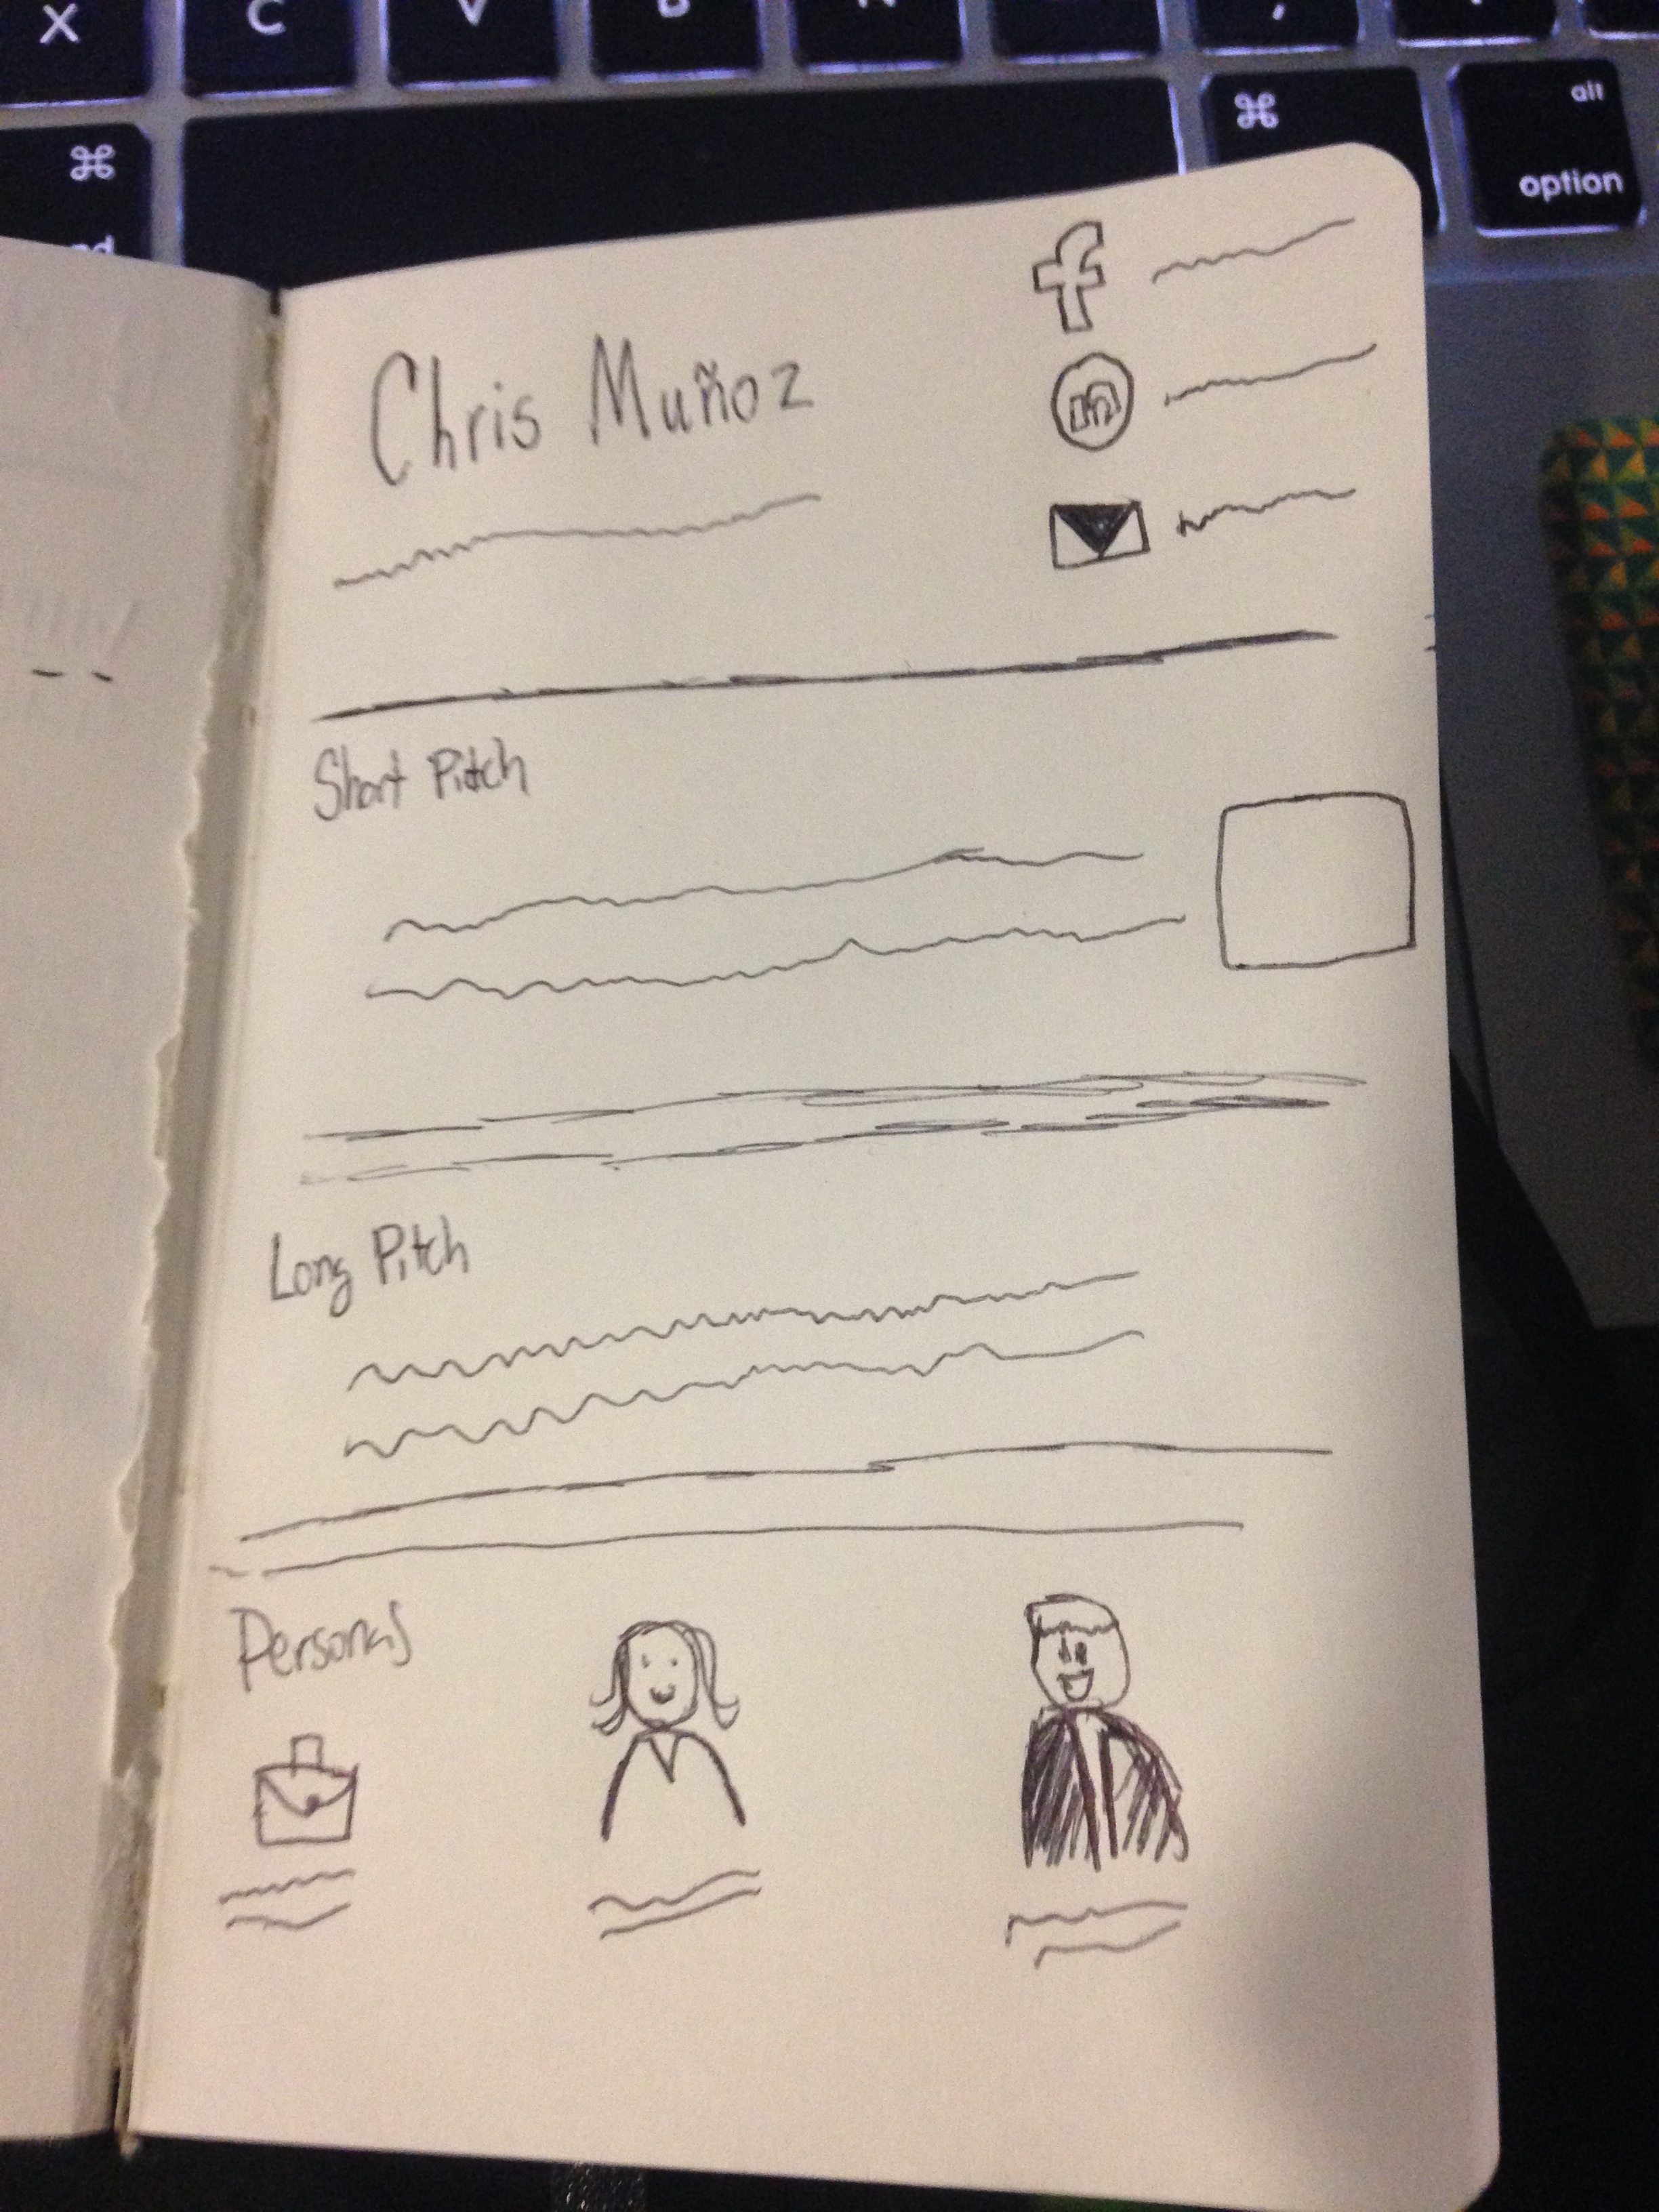 X C V B N
⌘ ⌘ alt
option
Chris Muñoz
f
in
Short Pitch
Long Pitch
Personas